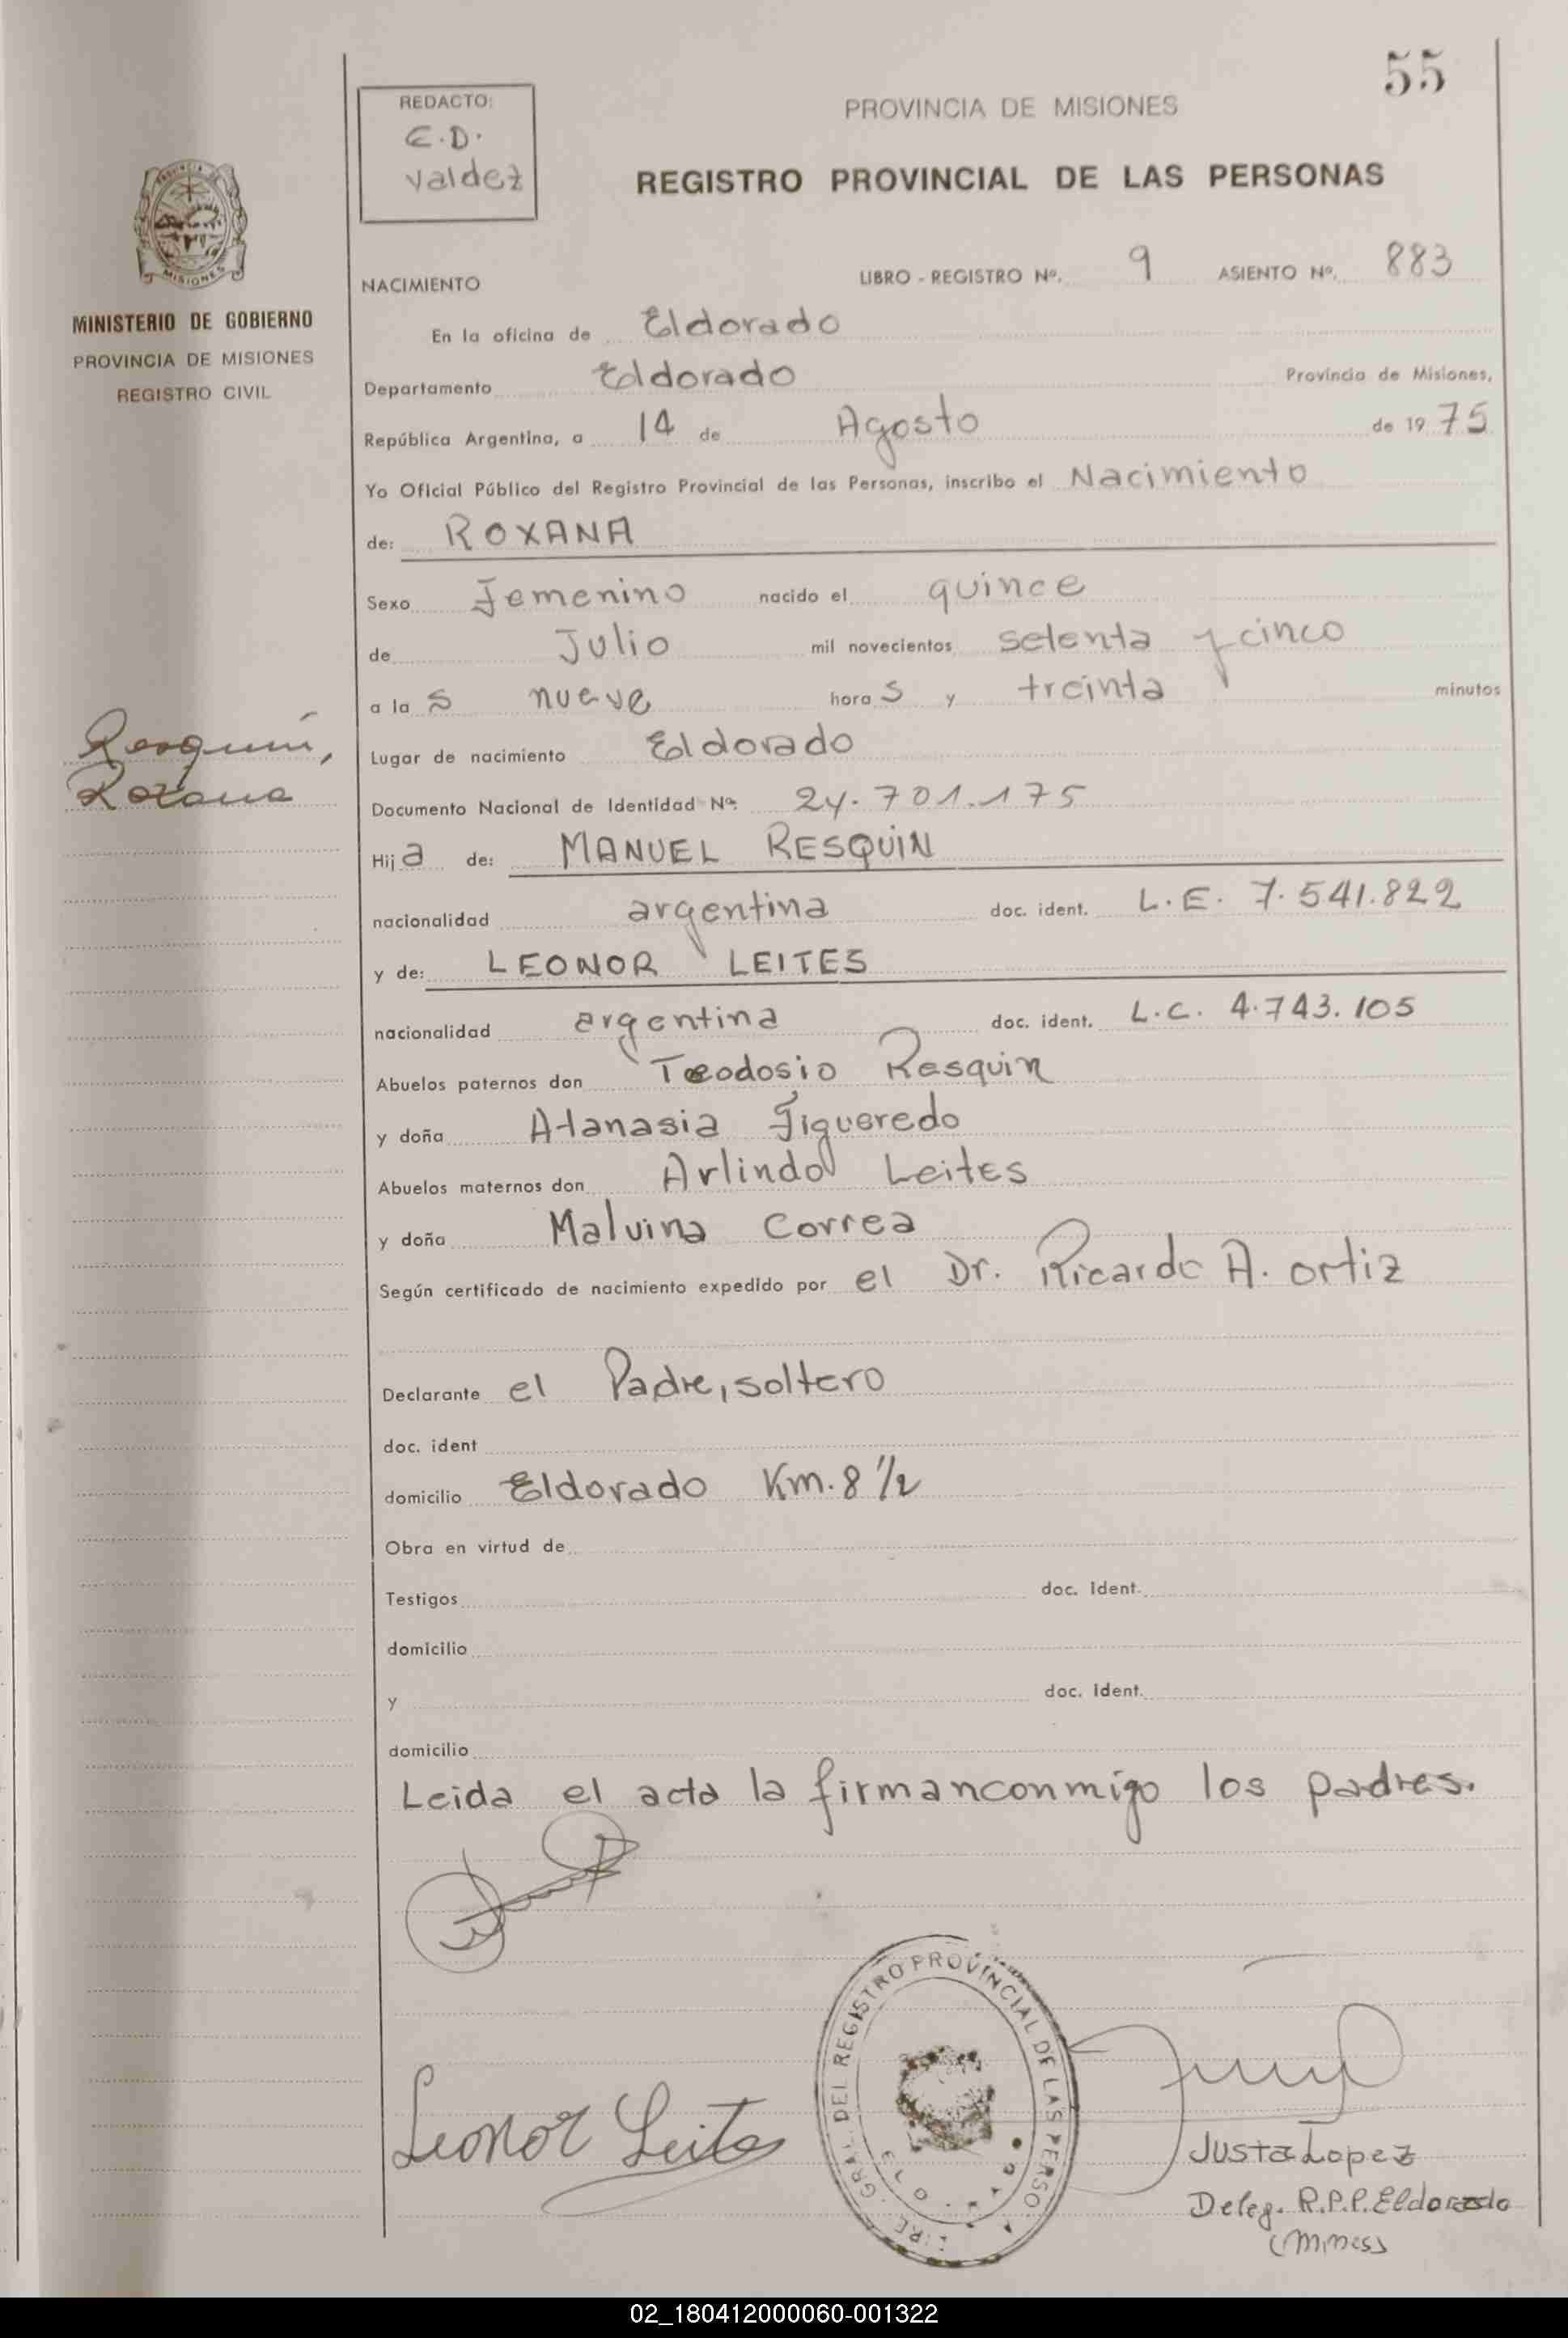 55
REDACTO:
E.D.
Valdez
PROVINCIA DE MISIONES
REGISTRO PROVINCIAL DE LAS PERSONAS
MISIONES
MINISTERIO DE GOBIERNO
PROVINCIA DE MISIONES
REGISTRO CIVIL
NACIMIENTO LIBRO - REGISTRO Nº. 9 ASIENTO Nº. 883
En la oficina de Eldorado
Departamento Eldorado Provincia de Misiones,
República Argentina, a 14 de Agosto de 19 75
Yo Oficial Público del Registro Provincial de las Personas, inscribo el Nacimiento
de: ROXANA
Sexo Femenino nacido el quince
de Julio mil novecientos setenta y cinco
a la s nueve hora s y treinta minutos
Resquin,
Roxana
Lugar de nacimiento Eldorado
Documento Nacional de Identidad Nº: 24.701.175
Hij a de: MANUEL RESQUIN
nacionalidad argentina doc. ident. L.E. 7.541.822
y de: LEONOR LEITES
nacionalidad argentina doc. ident. L.C. 4.743.105
Abuelos paternos don Teodosio Resquin
y doña Atanasia Figueredo
Abuelos maternos don Arlindo Leites
y doña Malvina Correa
Según certificado de nacimiento expedido por el Dr. Ricardo A. Ortiz
Declarante el Padre, soltero
doc. ident
domicilio Eldorado Km. 8 1/2
Obra en virtud de
Testigos doc. Ident.
domicilio
y doc. Ident.
domicilio
Leida el acta la firmanconmigo los padres.
GRAL. DEL REGISTRO PROVINCIAL DE LAS PERSO
Leonor Leites
Justa Lopez
Deleg. R.P.P. Eldorado
02_180412000060-001322